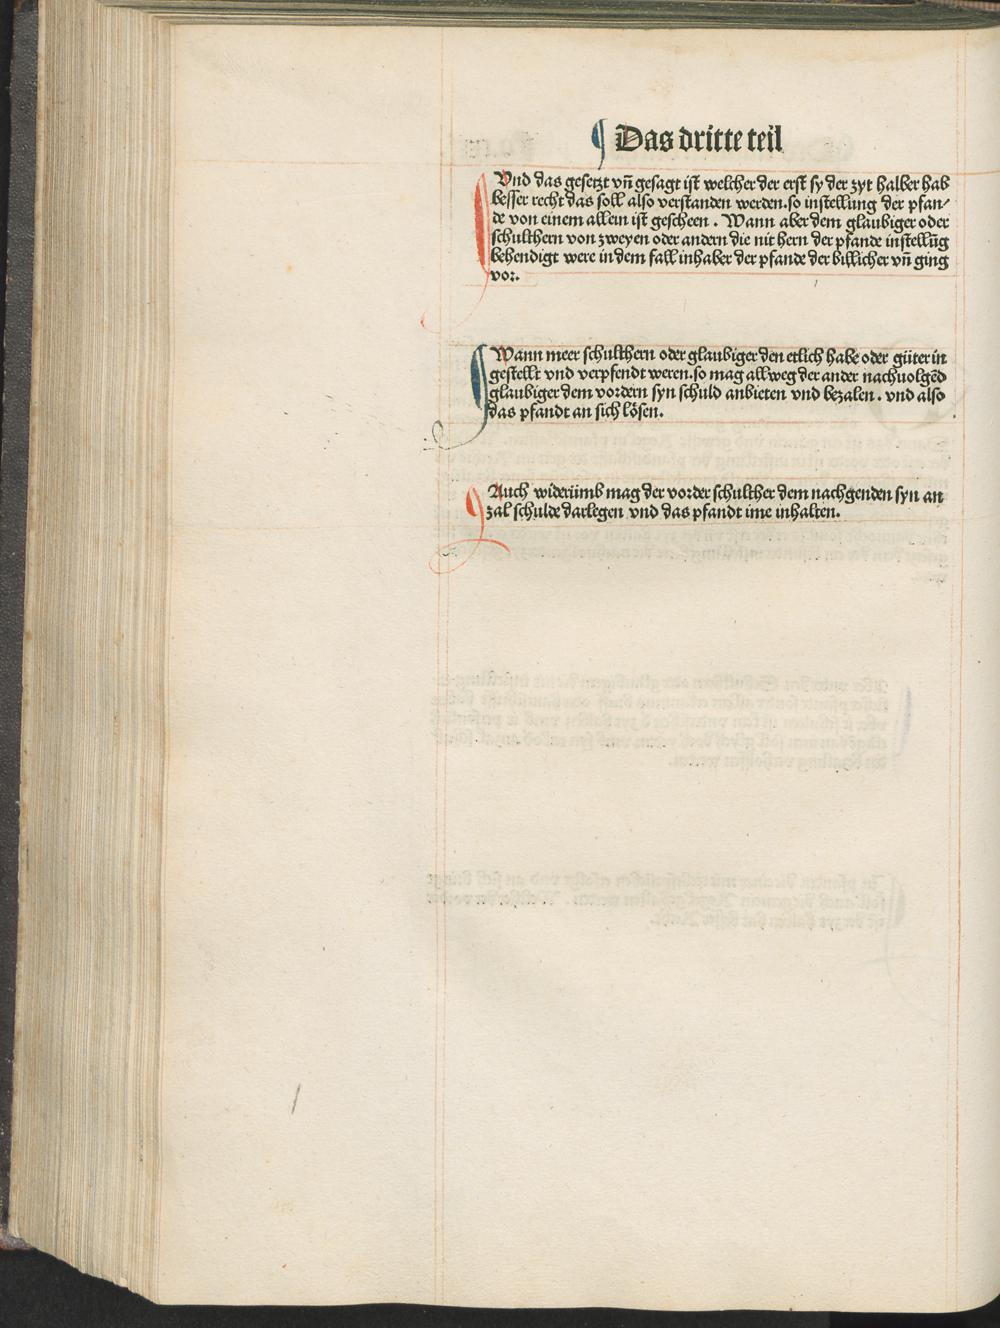 ¶ Das dritte teil
Vnd das gesetzt vn̄ gesagt ist welcher der erst sy der zyt halber hab
besser recht das soll also verstanden werden. so instellung der pfan⸗
de von einem allein ist gescheen. Wann aber dem glaubiger oder
schulthern von zweyen oder andern die nit hern der pfande instellūg
behendigt were in dem fall inhaber der pfande der billicher vn̄ ging
vor.
Wann meer schulthern oder glaubiger den etlich habe oder güter in
gestellt vnd verpfendt weren. so mag allweg der ander nachuolgēd
glaubiger dem vordern syn schuld anbieten vnd bezalen. vnd also
das pfandt an sich lösen.
Auch widerümb mag der vorder schulther dem nachgenden syn an
zal schulde darlegen vnd das pfandt ime inhalten.